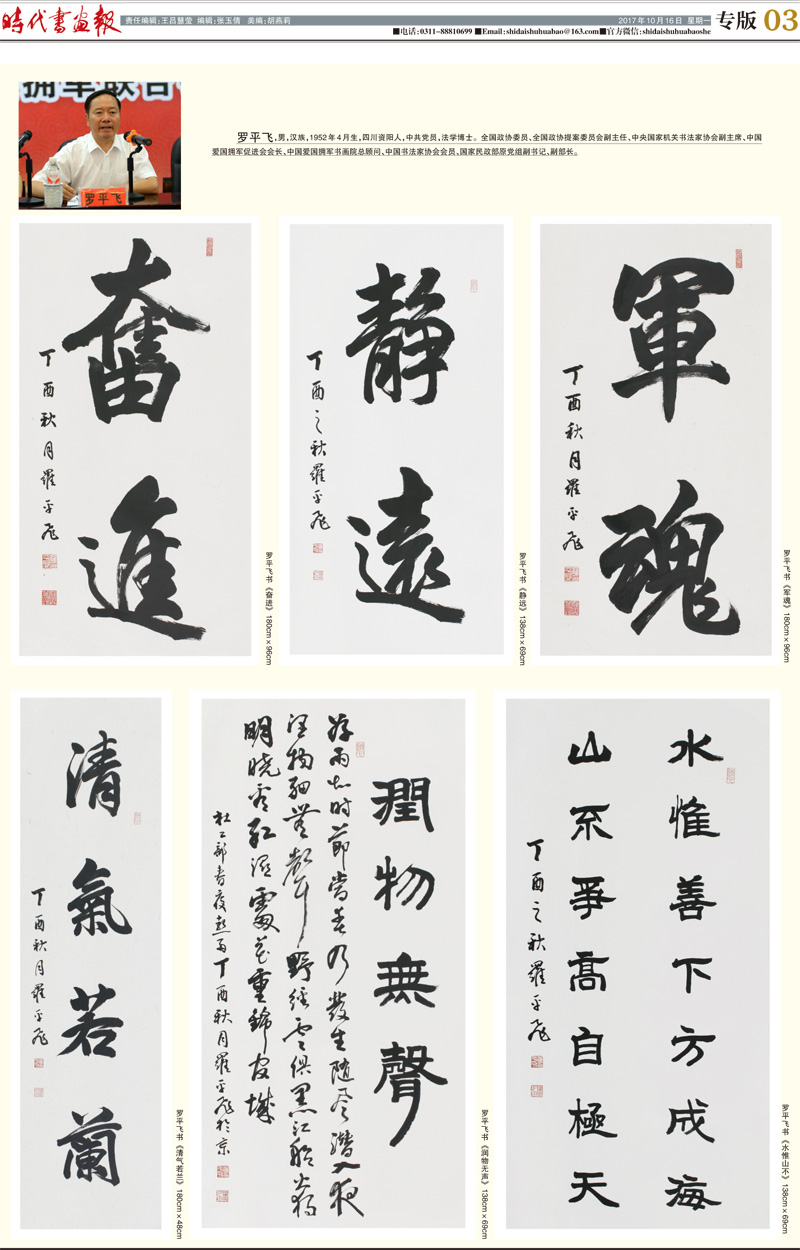 时代书画报
责任编辑:王吕慧莹 编辑:张玉倩 美编:胡燕莉
2017年10月16日 星期一
专版 03
■电话:0311-88810699 ■Email:shidaishuhuabao@163.com■官方微信:shidaishuhuabaoshe
拥军联合
罗平飞
罗平飞,男,汉族,1952年4月生,四川资阳人,中共党员,法学博士。全国政协委员、全国政协提案委员会副主任、中央国家机关书法家协会副主席、中国
爱国拥军促进会会长、中国爱国拥军书画院总顾问、中国书法家协会会员、国家民政部原党组副书记、副部长。
奮進
丁酉秋月羅平飛
罗平飞书《奋进》180cm×96cm
静遠
丁酉之秋羅平飛
罗平飞书《静远》138cm×69cm
軍魂
丁酉秋月羅平飛
罗平飞书《军魂》180cm×96cm
清氣若蘭
丁酉秋月羅平飛
罗平飞书《清气若兰》180cm×48cm
潤物無聲
好雨知时節當春乃發生随风潜入夜
潤物細無聲野径雲俱黑江船火獨
明曉看红湿處花重錦官城
杜工部春夜喜雨丁酉秋月羅平飛於京
罗平飞书《润物无声》138cm×69cm
水惟善下方成海
山不爭高自極天
丁酉之秋羅平飛
罗平飞书《水惟山不》138cm×69cm